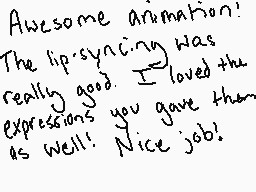 Awesome animation!
The lip-syncing was
really good. I loved the
expressions you gave them
as well! Nice job!